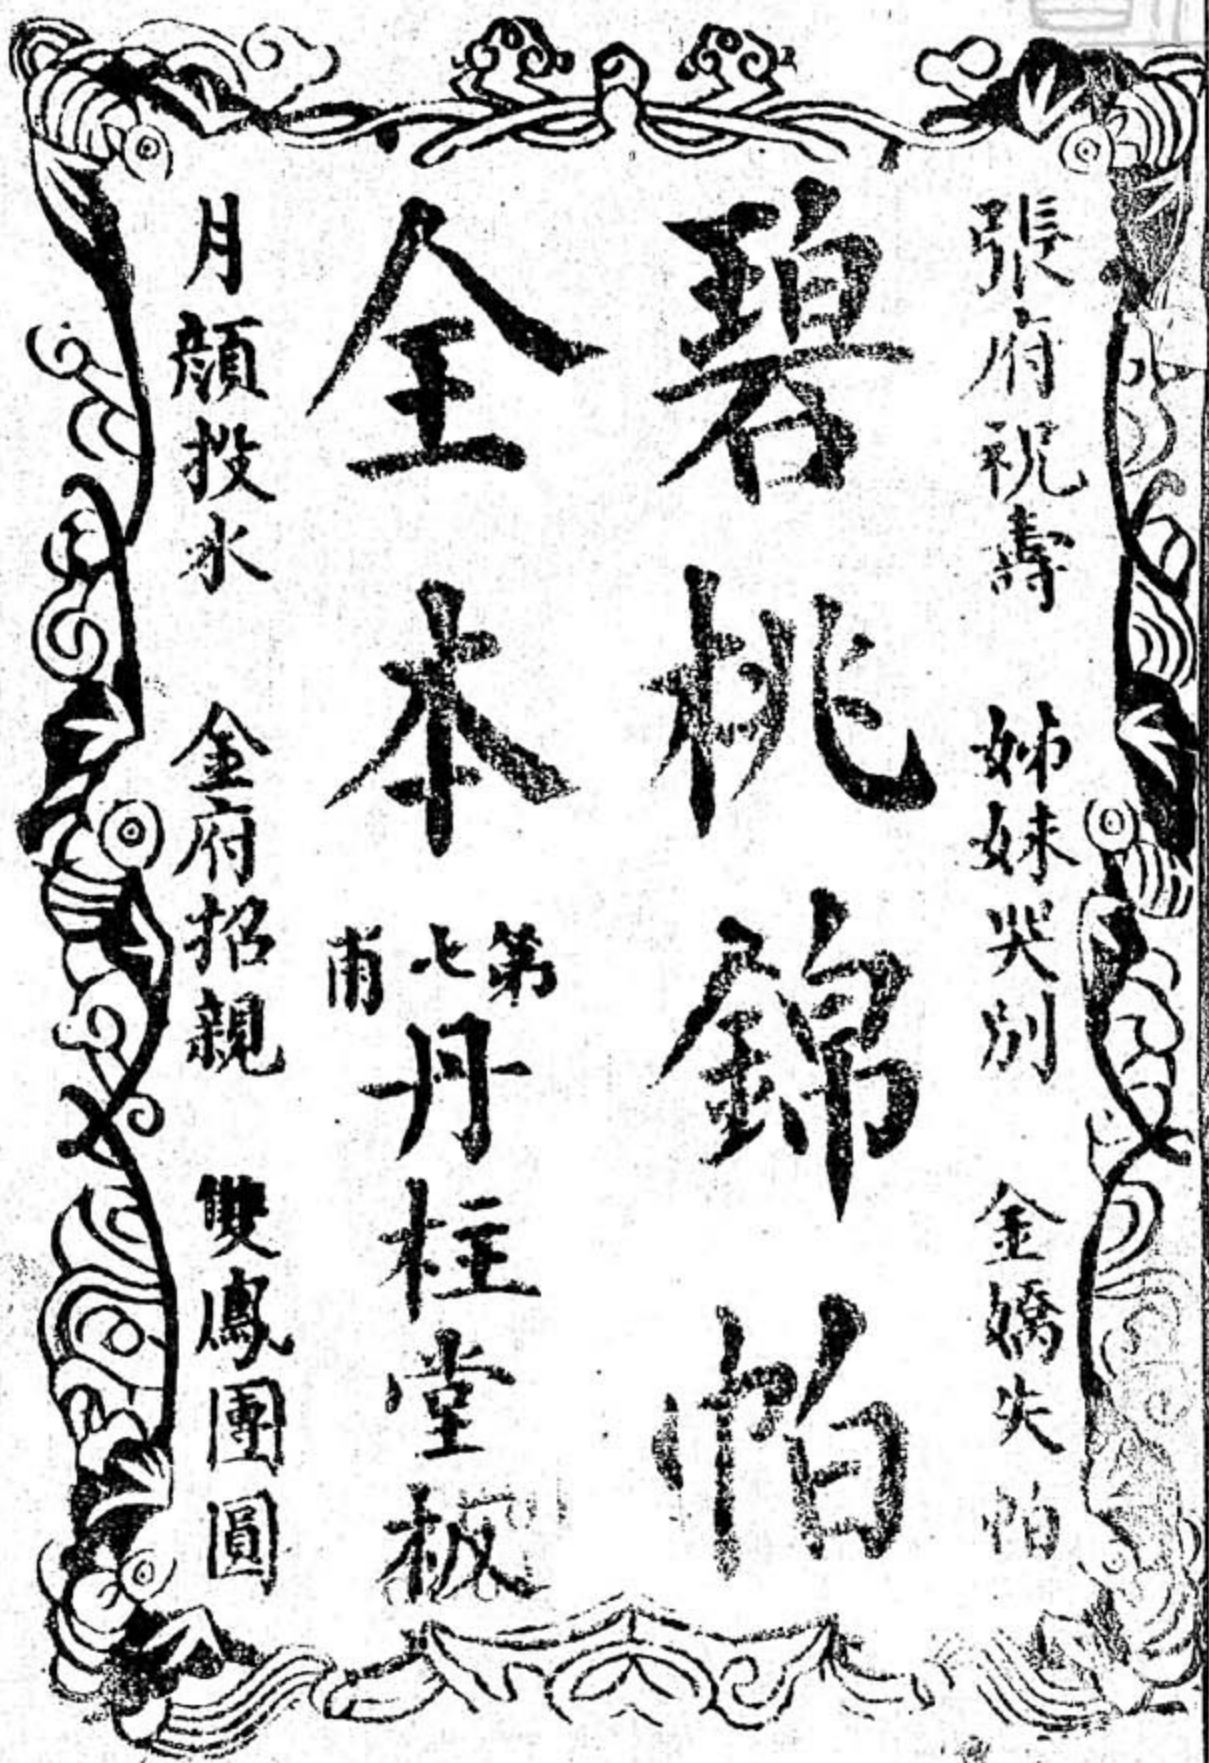 張府祝壽 姊妹哭別 金嬌失帕
碧桃錦帕
全本
第七甫
丹柱堂板
月顏投水 金府招親 雙鳳團圓